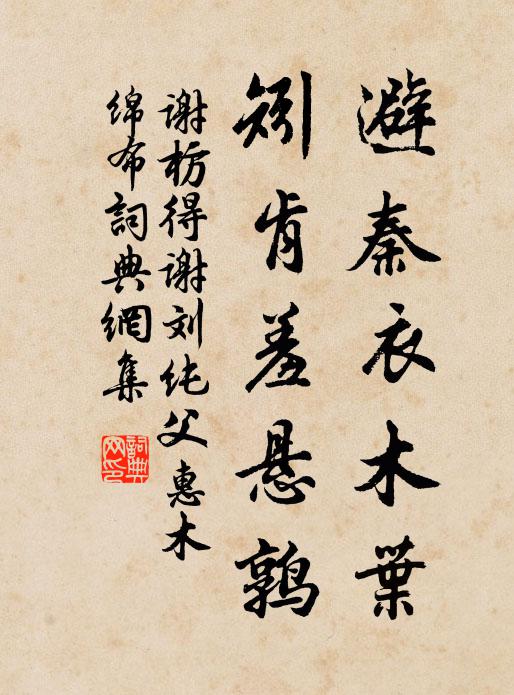 避秦衣木葉
矧肯羞悬鶉
谢枋得谢刘纯父惠木
绵布詞典網集
詞典网印